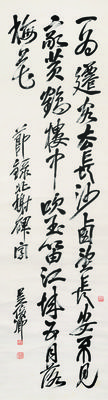 一為遷客去長沙西望長安不見
家黃鶴樓中吹玉笛江城五月落
梅花
節錄北榭碑字
吳俊卿